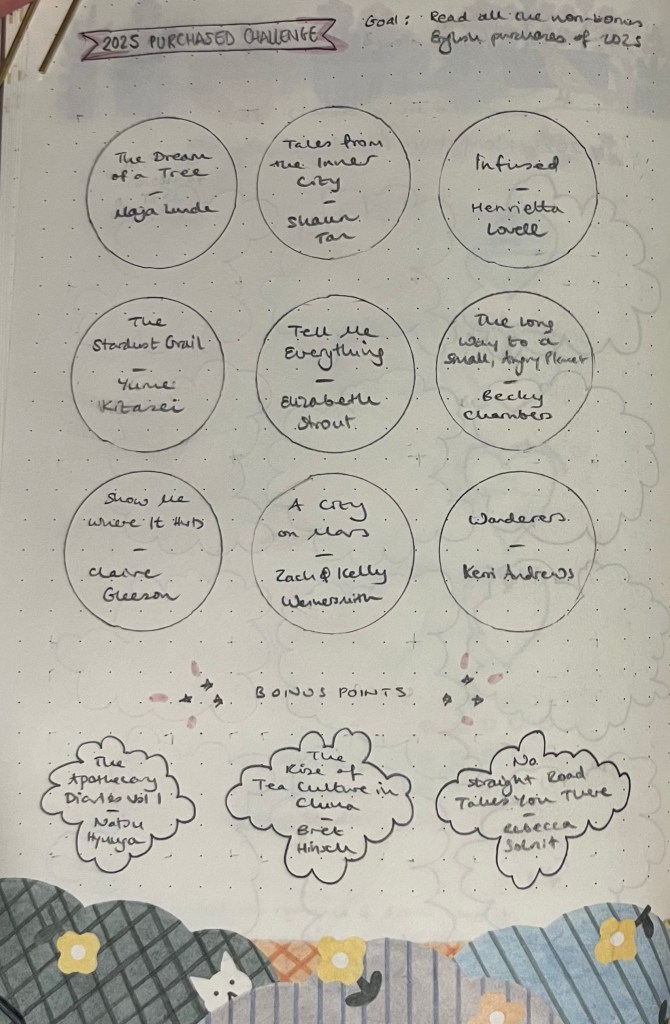 2025 PURCHASED CHALLENGE
Goal: Read all the non-bonus
English purchases of 2025
The Dream
of a Tree
-
Maja Lunde
Tales from
the Inner
City
-
Shaun
Tan
Infused
-
Henrietta
Lovell
The
Stardust Grail
-
Yume
Kitasei
Tell Me
Everything
-
Elizabeth
Strout
The Long
Way to a
Small, Angry Planet
-
Becky
Chambers
Show Me
Where It Hurts
-
Claire
Gleeson
A City
on Mars
-
Zach & Kelly
Weinersmith
Wanderers
-
Kerri Andrews
BONUS POINTS
The
Apothecary
Diaries Vol 1
-
Natsu
Hyuuga
The
Rise of
Tea Culture in
China
-
Bret
Hinsch
No
Straight Road
Takes You There
-
Rebecca
Solnit